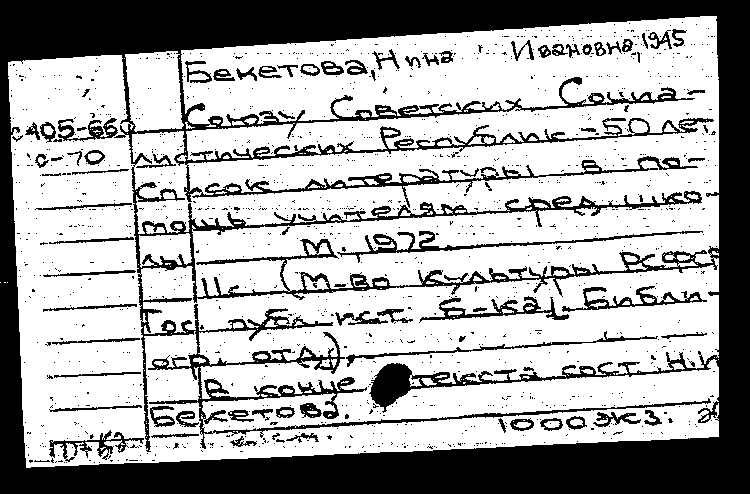 Бекетова, Нина Ивановна, 1945
с405-660 Союзу Советских Социа-
с-70 листических Республик - 50 лет.
Список литературы в по-
мощь учителям сред. шко-
лы М., 1972.
11с. (М-во культуры РСФСР
Гос. публ. ист. б-ка. Библи-
огр. отд.).
В конце текста сост.: Н.И
Бекетова.
1000экз.